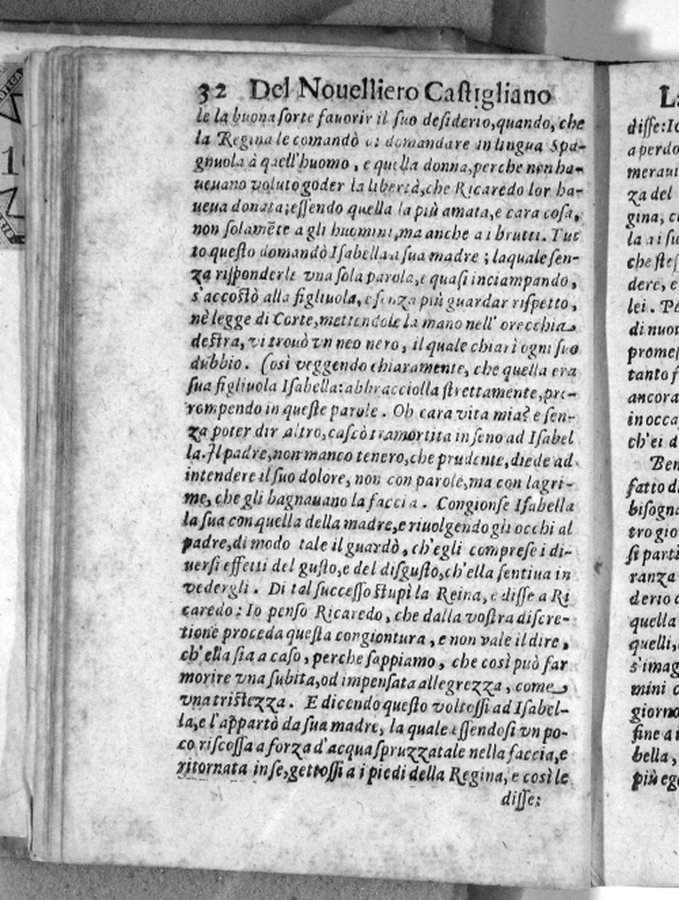 32 Del Nouelliero Castigliano
le la buona ſorte fauorir il ſuo deſiderio, quando, che
la Regina le comandò di domandare in lingua Spa-
gnuola à quell'huomo, e quella donna, perche non ha-
ueuano voluto goder la libertà, che Ricaredo lor ha-
ueua donata; eſſendo quella la più amata, e cara coſa,
non ſolamẽte a gli huomini, ma anche a i brutti. Tut
to queſto domandò Iſabella a ſua madre; laquale ſen-
za riſponderle vna ſola parola, e quaſi inciampando,
s'accoſtò alla figliuola, e ſenza più guardar riſpetto,
nè legge di Corte, mettendole la mano nell'orecchia
deſtra, vi trouò vn neo nero, il quale chiarì ogni ſuo
dubbio. Così veggendo chiaramente, che quella era
ſua figliuola Iſabella: abbracciolla ſtrettamente, pro-
rompendo in queſte parole. Oh cara vita mia? e ſen-
za poter dir altro, caſcò tramortita in ſeno ad Iſabel
la. Il padre, non manco tenero, che prudente, diede ad
intendere il ſuo dolore, non con parole, ma con lagri-
me, che gli bagnauano la faccia. Congionſe Iſabella
la ſua con quella della madre, e riuolgendo gli occhi al
padre, di modo tale il guardò, ch'egli compreſe i di-
uerſi effetti del guſto, e del diſguſto, ch'ella ſentiua in
vedergli. Di tal ſucceſſo ſtupì la Reina, e diſſe a Ri
caredo: Io penſo Ricaredo, che dalla voſtra diſcre-
tione proceda queſta congiontura, e non vale il dire,
ch'ella ſia a caſo, perche ſappiamo, che così può far
morire vna ſubita, od impenſata allegrezza, come
vna triſtezza. E dicendo queſto voltoſſi ad Iſabel-
la, e l'appartò da ſua madre, la quale eſſendoſi vn po-
co riſcoſſa a forza d'acqua ſpruzzatale nella faccia, e
ritornata in ſe, gettoſſi a i piedi della Regina, e così le
diſſe:
La
diſſe: Io
a perdo
meraui
za del
gina, c
la ai ſu
che ſteſ
dere, e
lei. Pe
di nuou
promeſ
tanto f
ancora
in occa
ch'ei d
Ben
fatto d
biſogna
tro gio
ſi partì
ranza
derio
quella
quelli,
s'imag
mini c
giorno
fine a i
bella,
più eg